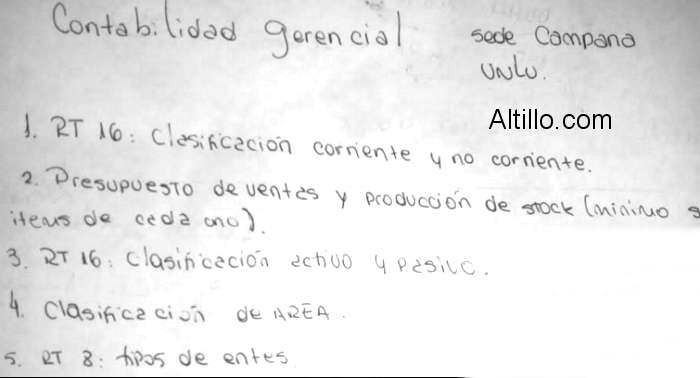 Contabilidad gerencial
sede Campana
UNLu.
Altillo.com
1. RT 16: Clasificación corriente y no corriente.
2. Presupuesto de ventas y producción de stock (minimo
items de cada uno).
3. RT 16: Clasificación activo y pasivo.
4. Clasificación de AREA.
5. RT 8: tipos de entes